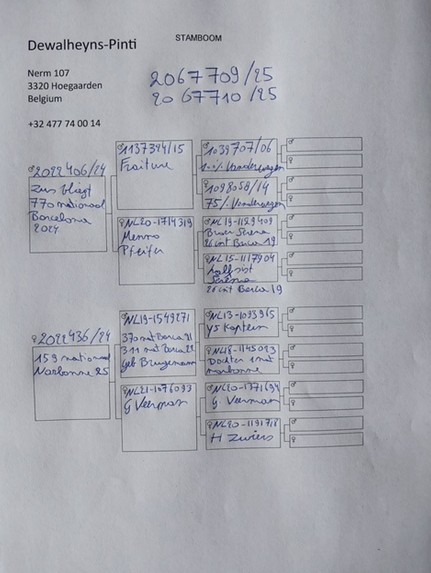 STAMBOOM
Dewalheyns-Pinti
Nerm 107
3320 Hoegaarden
Belgium
+32 477 74 00 14
2067709/25
2067710/25
♂2022406/24
Zus vliegt
770 nationaal
Barcelona
2024
♂1137394/15
Fraiture
♂1039707/06
100% Vanderwegen
♀1098058/14
75% Vanderwegen
♀NL20-1714319
Menno
Pfeifer
♂NL19-1129409
Broer Serena
26 int Barca 19
♀NL15-1117904
halfzist
Serena
26 int Barca 19
♀2022436/24
159 nationaal
Narbonne 25
♂NL19-1549271
370 nat Barca 21
311 nat Barca 22
Geb Brugemann
♂NL13-1033965
YS Kaptein
♀NL18-1145093
Dochter 1 nat
narbonne
♀NL21-1076093
G Veerman
♂NL20-1771694
G. Veerman
♀NL20-1191718
H Zwiers